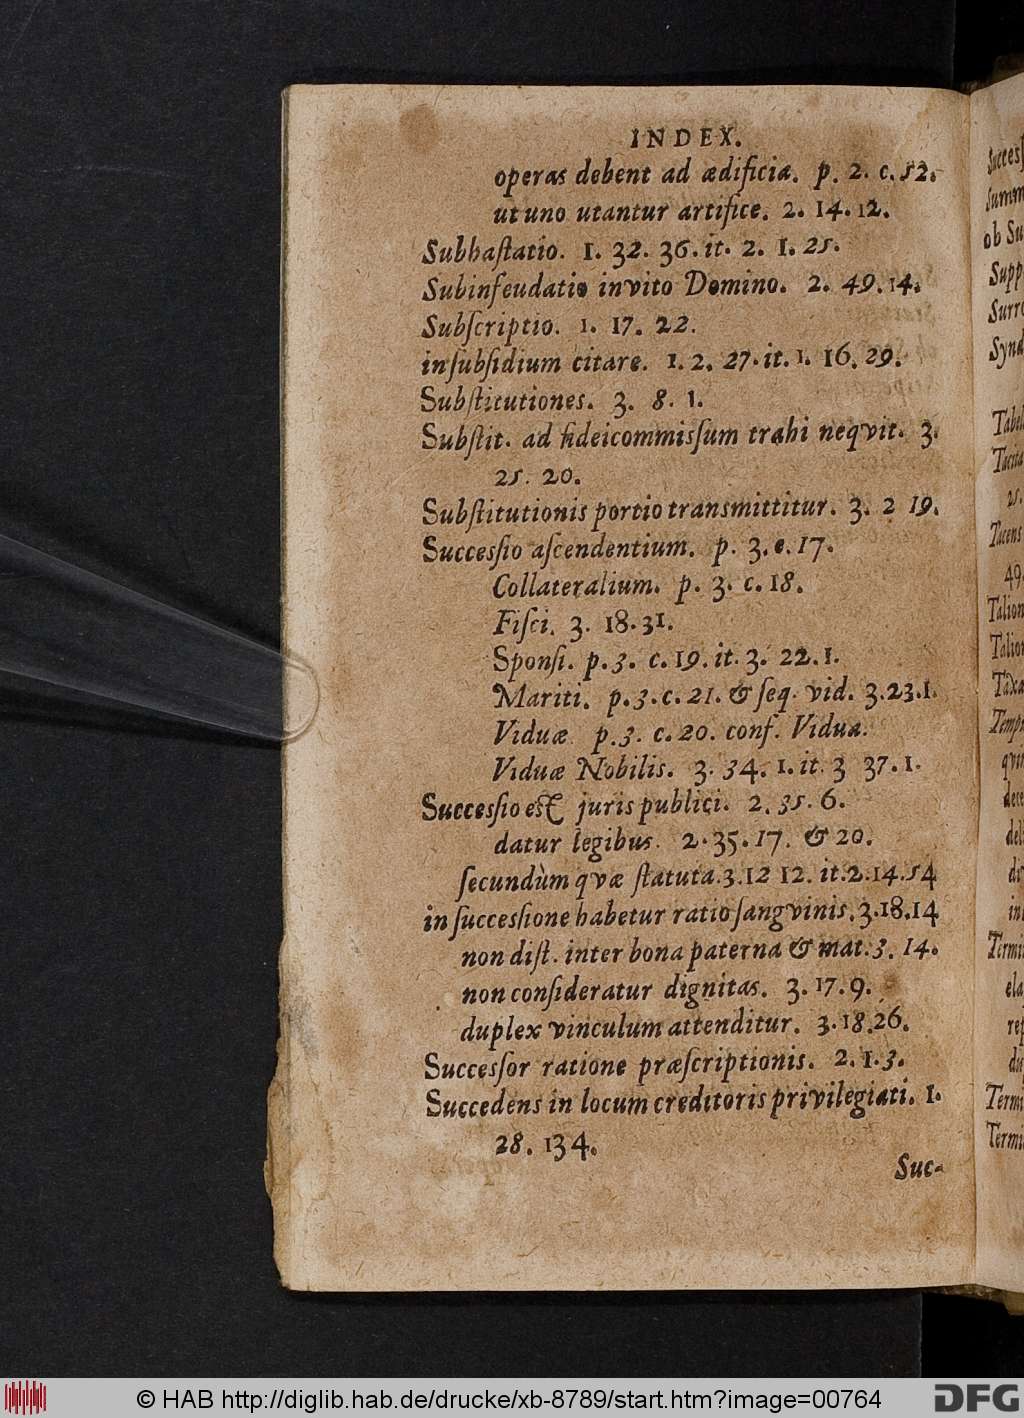 INDEX.
operas debent ad ædificia. p. 2. c. 52.
ut uno utantur artifice. 2. 14. 12.
Subhaſtatio. 1. 32. 36. it. 2. 1. 25.
Subinfeudatio invito Domino. 2. 49. 14.
Subſcriptio. 1. 17. 22.
in ſubſidium citare. 1. 2. 27. it. 1. 16. 29.
Subſtitutiones. 3. 8. 1.
Subſtit. ad fideicommiſſum trahi neqvit. 3.
25. 20.
Subſtitutionis portio transmittitur. 3. 2 19.
Succesſio aſcendentium. p. 3. c. 17.
Collateralium. p. 3. c. 18.
Fiſci. 3. 18. 31.
Sponſi. p. 3. c. 19. it. 3. 22. 1.
Mariti. p. 3. c. 21. & ſeq. vid. 3. 23. 1.
Viduæ p. 3. c. 20. conf. Vidua.
Viduæ Nobilis. 3. 34. 1. it. 3 37. 1.
Succesſio eſt juris publici. 2. 35. 6.
datur legibus. 2. 35. 17. & 20.
ſecundùm qvæ ſtatuta. 3. 12 12. it. 2. 14. 54
in ſuccesſione habetur ratio ſangvinis. 3. 18. 14
non diſt. inter bona paterna & mat. 3. 14.
non conſideratur dignitas. 3. 17. 9.
duplex vinculum attenditur. 3. 18. 26.
Succesſor ratione præſcriptionis. 2. 1. 3.
Succedens in locum creditoris privilegiati. 1.
28. 134.
Suc-
ob Su
25.
49.
© HAB http://diglib.hab.de/drucke/xb-8789/start.htm?image=00764
DFG